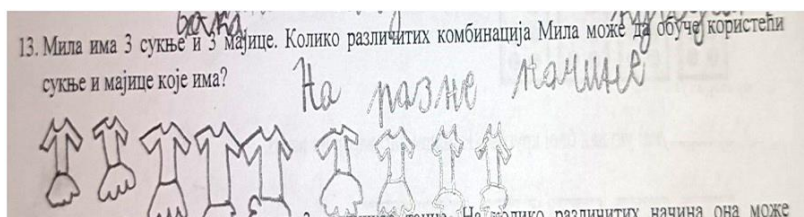 13. Мила има 3 сукње и 3 мајице. Колико различитих комбинација Мила може да обуче користећи
сукње и мајице које има?
На разне начине
различитих начина она може